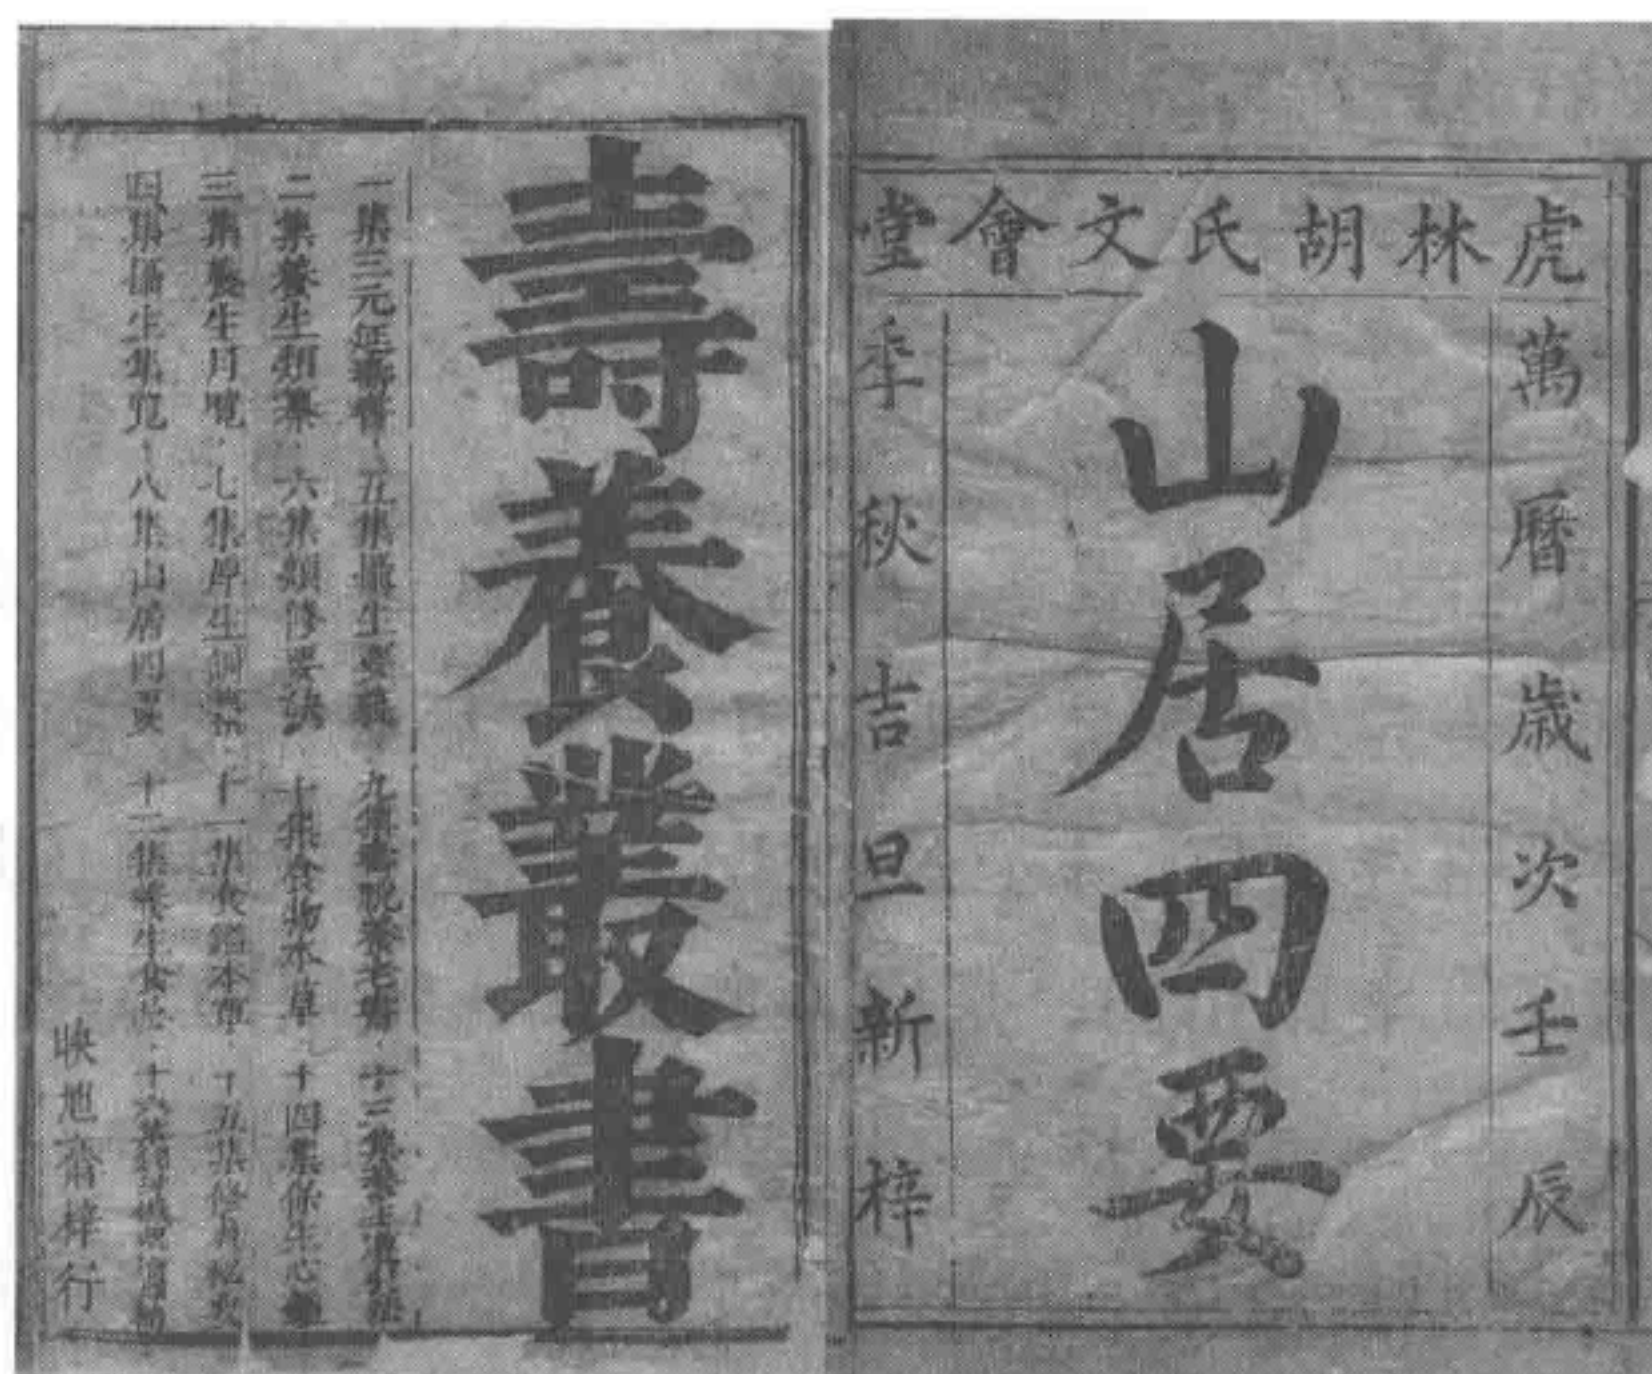 虎林胡氏文會堂
萬曆歲次壬辰
山居四要
季秋吉旦新梓
壽養叢書
一集三元延壽書 五集攝生要義 九集壽親養老書 十三集
二集養生類纂 六集類修要訣 十集食物本草 十四集保生心鑑
三集養生月覽 七集厚生訓纂 十一集食鑑本草 十五集修真秘要
四集攝生集覽 八集山居四要 十二集養生食忌 十六集
映旭齋梓行